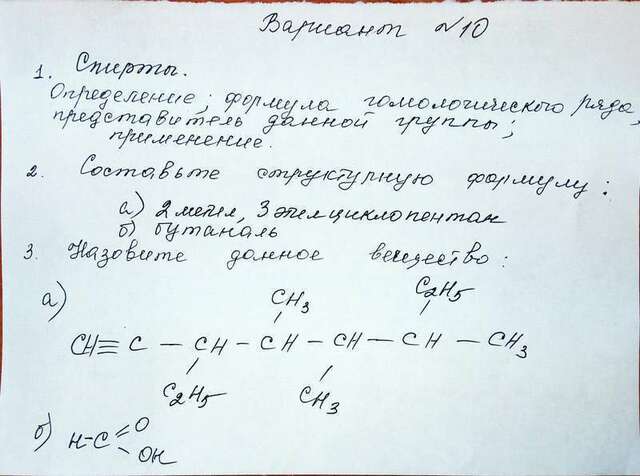 Вариант №10
1. Спирты.
Определение; формула гомологического ряда,
представитель данной группы;
применение.
2. Составьте структурную формулу:
а) 2 метил, 3 этилциклопентан
б) бутаналь
3. Назовите данное вещество:
а) CH3 C2H5
CH≡C – CH – CH – CH – CH – CH3
C2H5 CH3
б) H–C=O
–OH